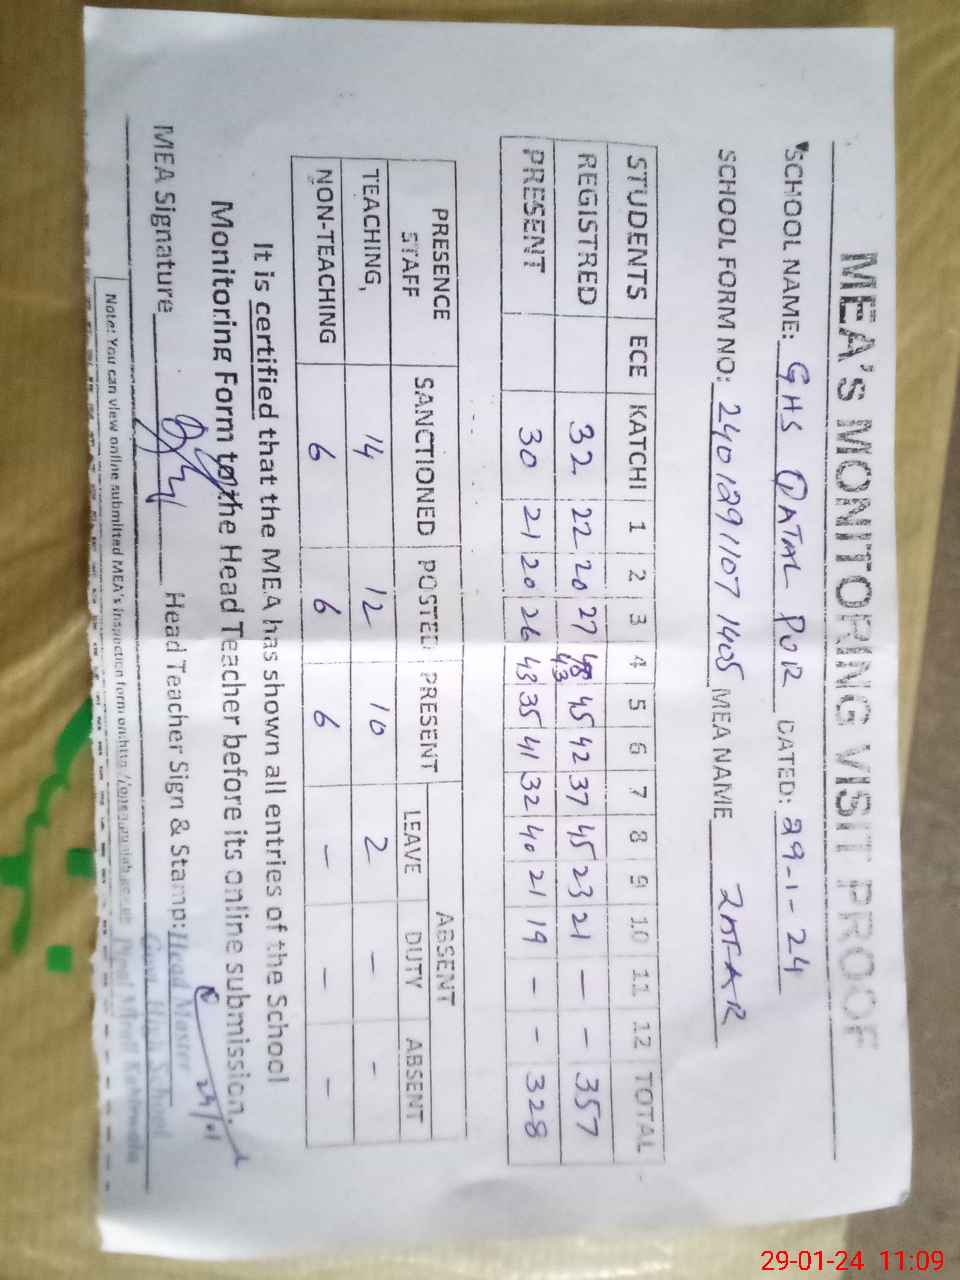 MEA's MONITORING VISIT PROOF
SCHOOL NAME: GHS QATAL PUR DATED: 29-1-24
SCHOOL FORM NO: 2401291107 1405 MEA NAME ZAFAR
STUDENTS ECE KATCHI 1 2 3 4 5 6 7 8 9 10 11 12 TOTAL
REGISTRED 32 22 20 27 48 43 45 42 37 45 23 21 - - 357
PRESENT 30 21 20 26 43 35 41 32 40 21 19 - - 328
PRESENCE STAFF SANCTIONED POSTED PRESENT ABSENT
LEAVE DUTY ABSENT
TEACHING, 14 12 10 2 - -
NON-TEACHING 6 6 6 - - -
It is certified that the MEA has shown all entries of the School
Monitoring Form to the Head Teacher before its online submission.
MEA Signature Head Teacher Sign & Stamp: Head Master
29/01
Govt. High School
Note: You can view online submitted MEA's Inspection form on:http:/
29-01-24 11:09